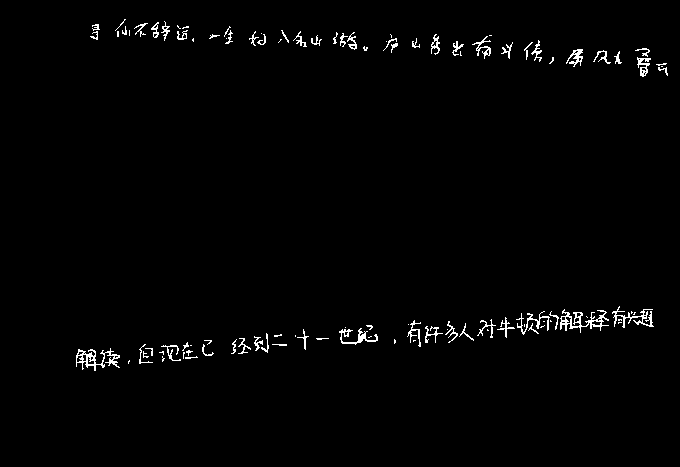 寻仙不辞远,一生好入名山游。庐山秀出南斗傍,屏风九叠云
解读,但现在已经到二十一世纪,有许多人对牛顿的解释有兴趣